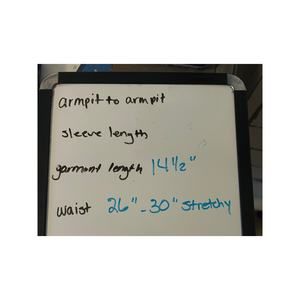 armpit to armpit
sleeve length
garment length 14 1/2"
waist 26" - 30" stretchy